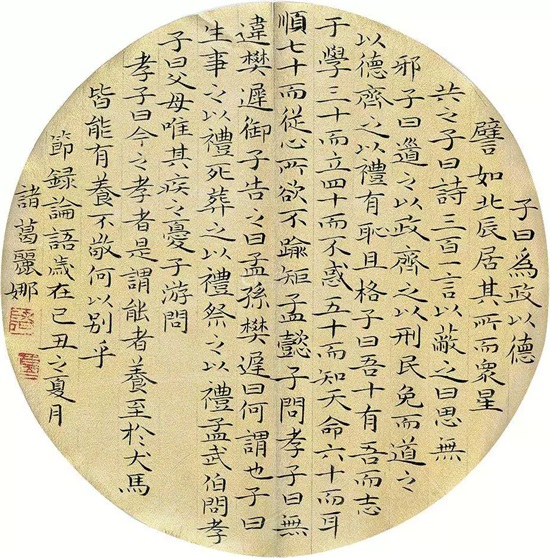 子曰為政以德
譬如北辰居其所而衆星
共之子曰詩三百一言以蔽之曰思無
邪子曰道之以政齊之以刑民免而道之
以德齊之以禮有恥且格子曰吾十有吾而志
于學三十而立四十而不惑五十而知天命六十而耳
順七十而從心所欲不踰矩孟懿子問孝子曰無
違樊遲御子告之曰孟孫樊遲曰何謂也子曰
生事之以禮死葬之以禮祭之以禮孟武伯問孝
子曰父母唯其疾之憂子游問
孝子曰今之孝者是謂能者養至於犬馬
皆能有養不敬何以別乎
節録論語歲在己丑之夏月
諸葛麗娜